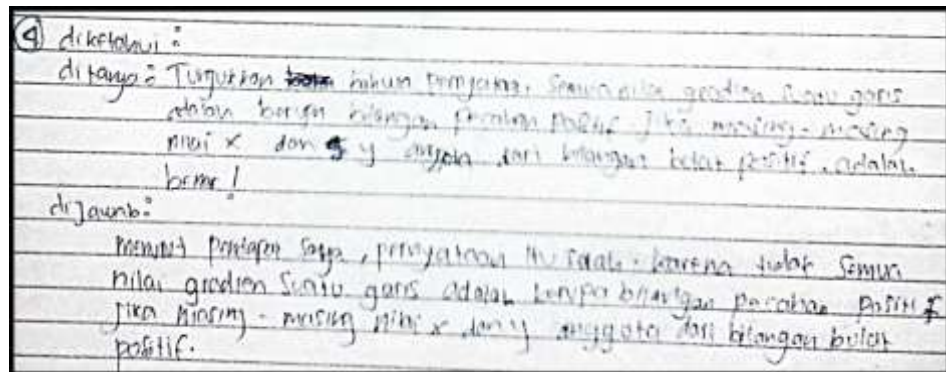 ④ diketahui :
ditanya : Tunjukkan bahwa pernyataan, Semua nilai gradien suatu garis
adalah berupa bilangan pecahan Positif. Jika masing-masing
nilai x dan y anggota dari bilangan bulat positif. adalah
benar!
diJawab:
menurut Pendapat Saya, pernyataan itu salah. karena tidak Semua
nilai gradien Suatu garis adalah berupa bilangan pecahan Positif
Jika Masing-masing nilai x dan y anggota dari bilangan bulat
positif.